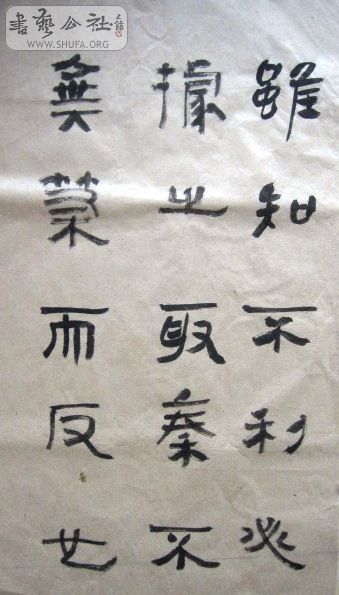 書藝公社
WWW.SHUFA.ORG
雖知不利必
據之取秦不
無而反也